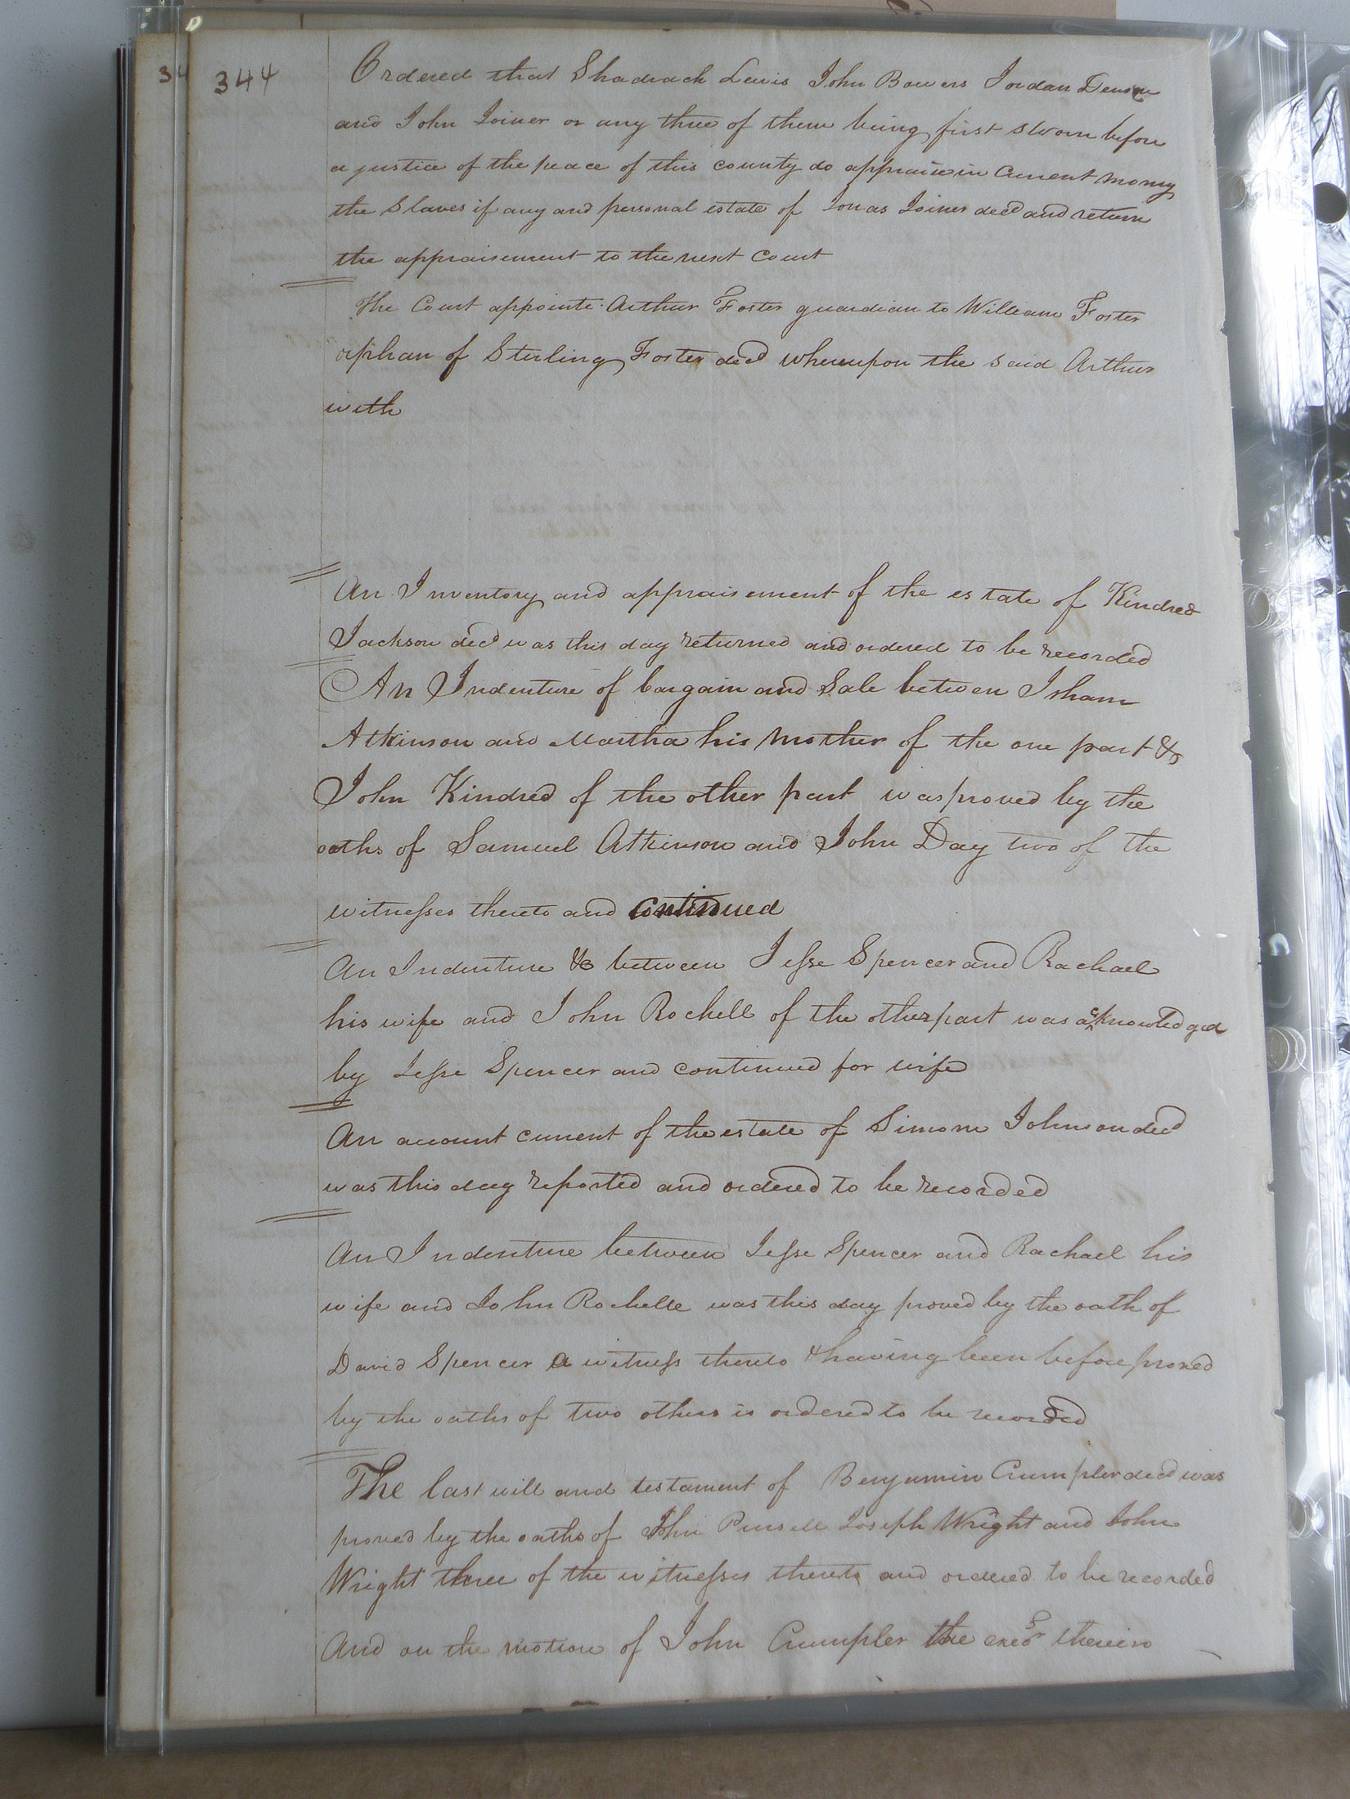 34
344
Ordered that Shadrach Lewis John Bowers Jordan Denson
and John Joiner or any three of them being first sworn before
a justice of the peace of this county do appraise in Current money
the Slaves if any and personal estate of Jonas Joiner decd and return
the appraisement to the next Court
The Court appoints Arthur Foster guardian to William Foster
orphan of Sterling Foster decd whereupon the said Arthur
with
An Inventory and appraisement of the estate of Kindred
Jackson decd was this day returned and ordered to be recorded
An Indenture of bargain and Sale between Isham
Atkinson and Martha his Mother of the one part &
John Kindred of the other part was proved by the
oaths of Samuel Atkinson and John Day two of the
witnesses thereto and Continued
An Indenture & between Jesse Spencer and Rachael
his wife and John Rochell of the other part was acknowledged
by Jesse Spencer and continued for wife
An account current of the estate of Simon Johnson decd
was this day reported and ordered to be recorded
An Indenture between Jesse Spencer and Rachael his
wife and John Rochelle was this day proved by the oath of
David Spencer a witness thereto & having been before proved
by the oaths of two others is ordered to be recorded
The last will and testament of Benjamin Crumpler decd was
proved by the oaths of John Joseph Wright and John
Wright three of the witnesses thereto and ordered to be recorded
And on the motion of John Crumpler the exeor therein